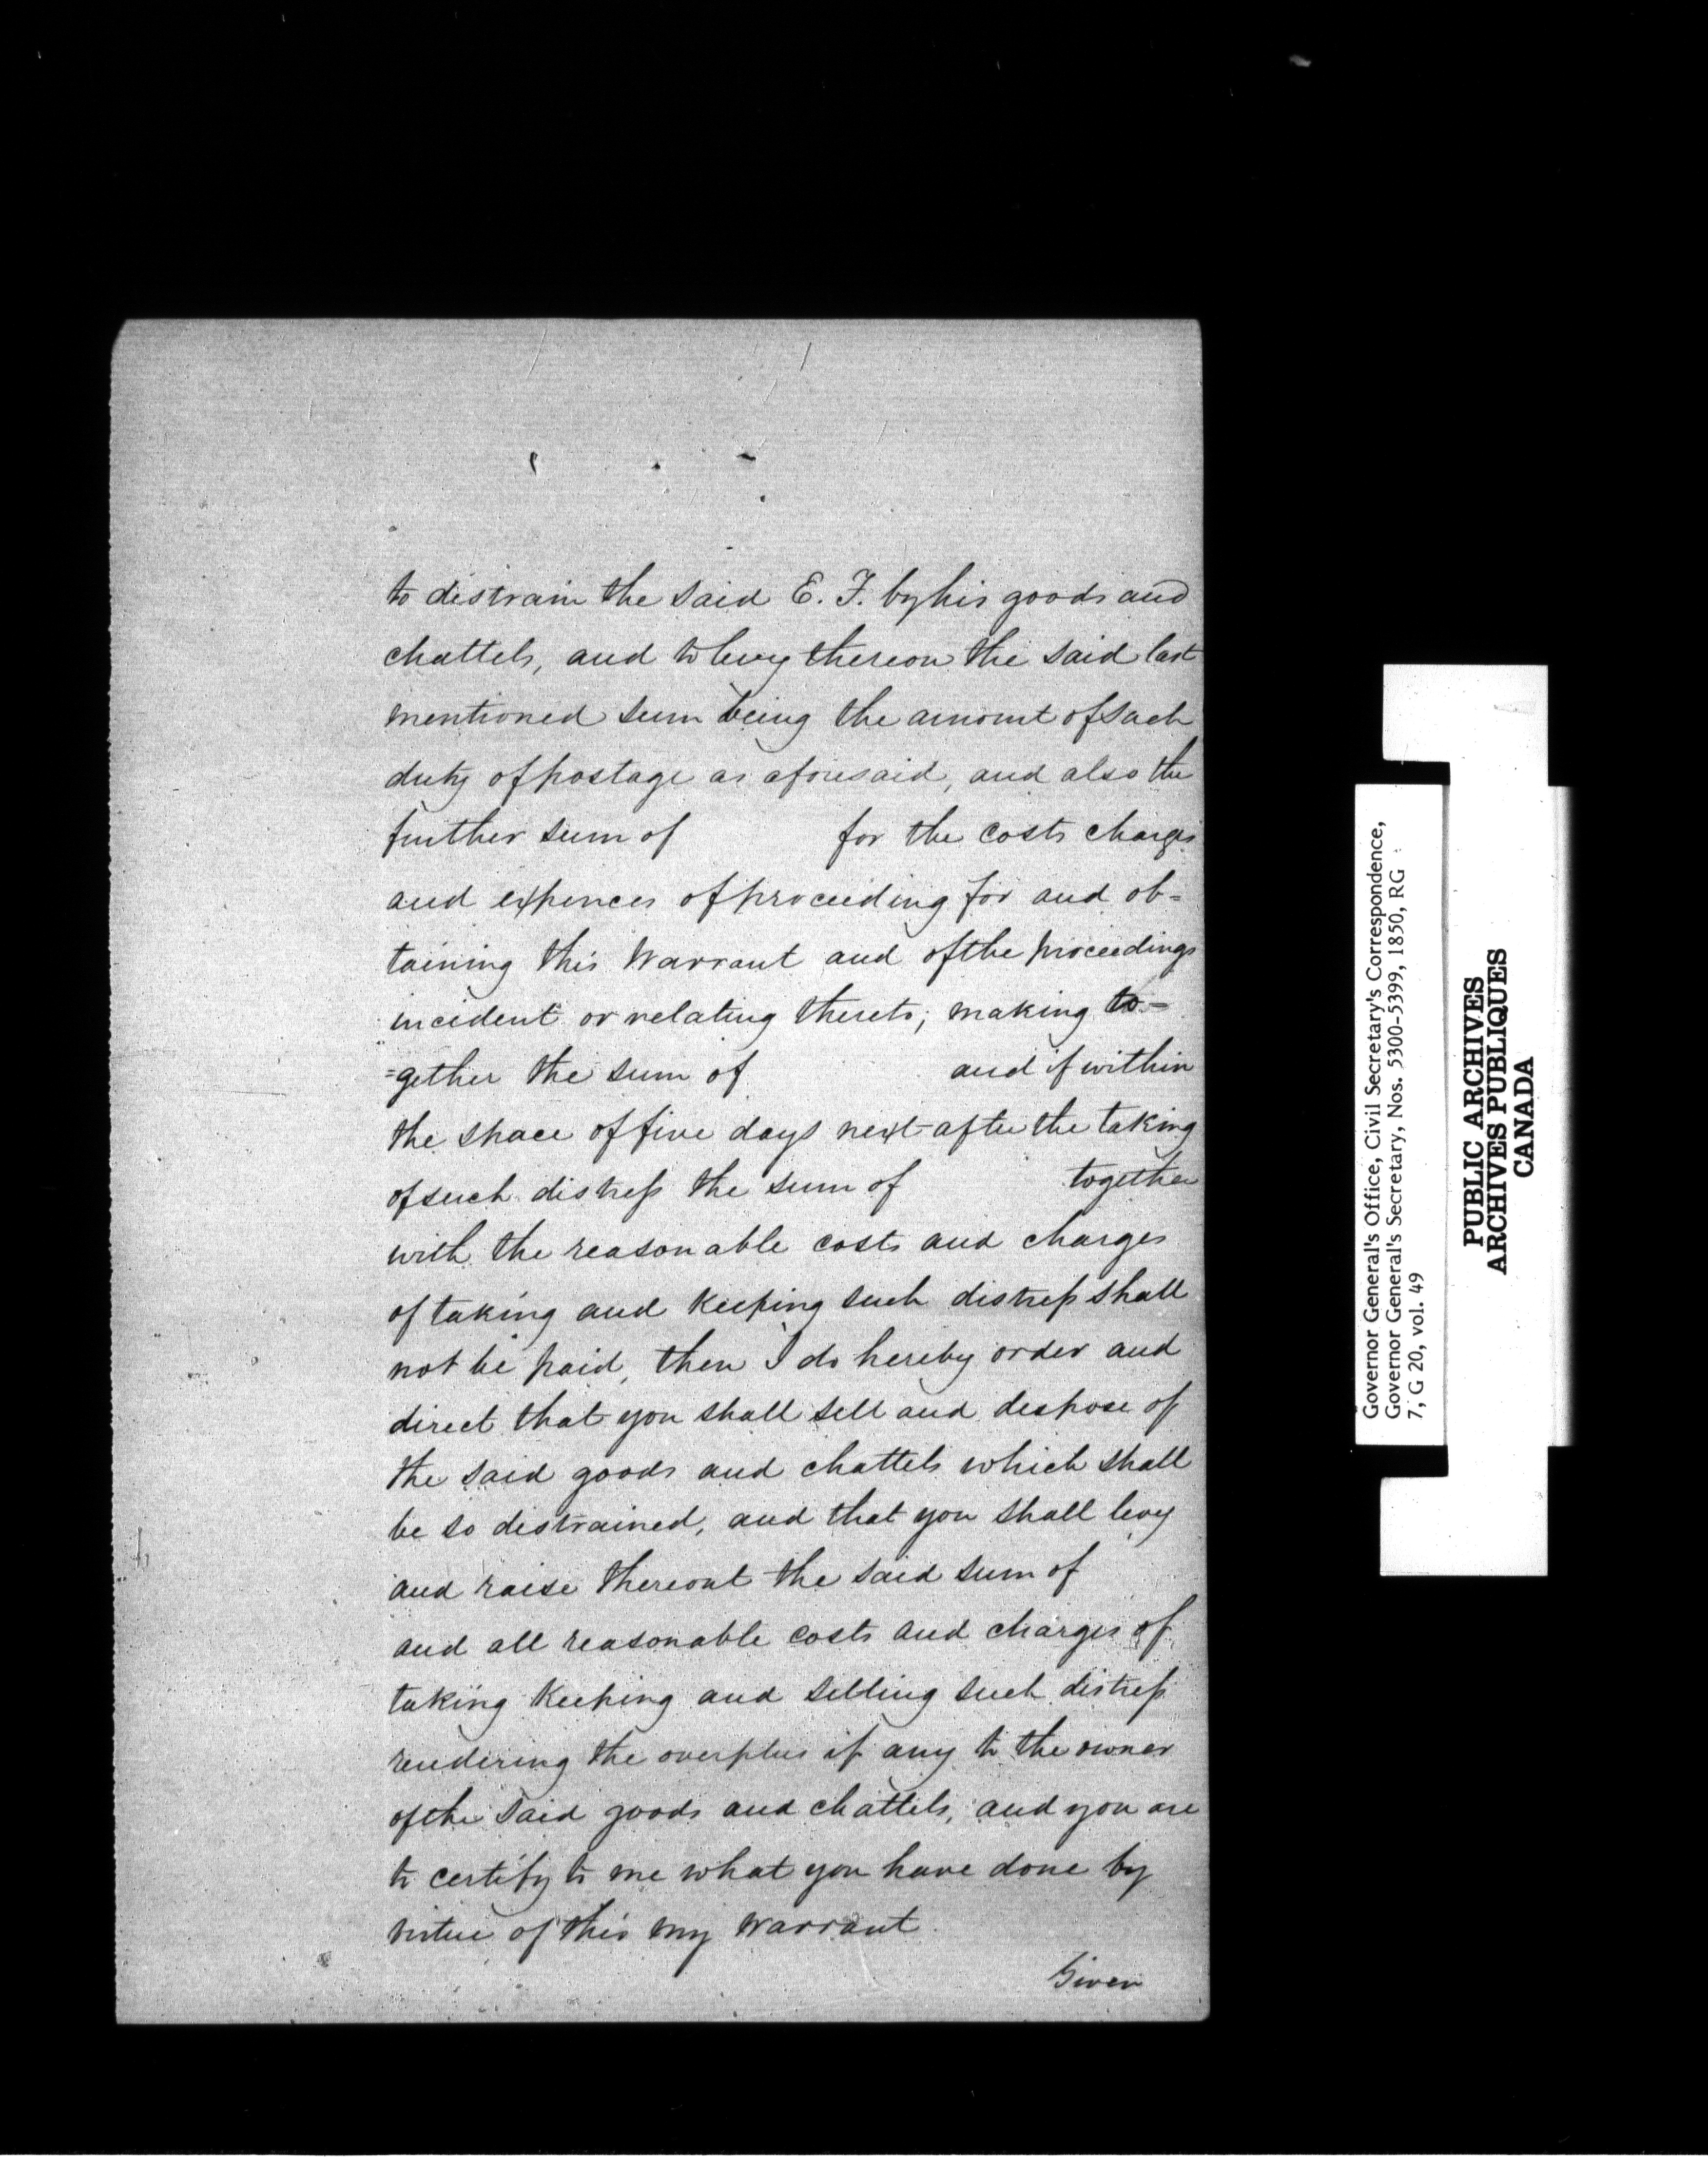 to distrain the said E. F. by his goods and
chattels, and to levy thereon the said last
mentioned sum being the amount of such
duty of postage as aforesaid, and also the
further sum of for the costs charges
and expences of proceeding for and ob=
taining this Warrant and of the proceedings
incident or relating thereto; making to=
=gether the sum of and if within
the space of five days next after the taking
of such distress the sum of together
with the reasonable costs and charges
of taking and keeping such distress shall
not be paid, then I do hereby order and
direct that you shall sell and dispose of
the said goods and chattels which shall
be so distrained, and that you shall levy
and raise thereout the said sum of
and all reasonable costs and charges of
taking keeping and selling such distress
rendering the overplus if any to the owner
of the said goods and chattels, and you are
to certify to me what you have done by
virtue of this my Warrant.
Given
Governor General's Office, Civil Secretary's Correspondence,
Governor General's Secretary, Nos. 5300-5399, 1850, RG
7, G 20, vol. 49
PUBLIC ARCHIVES
ARCHIVES PUBLIQUES
CANADA